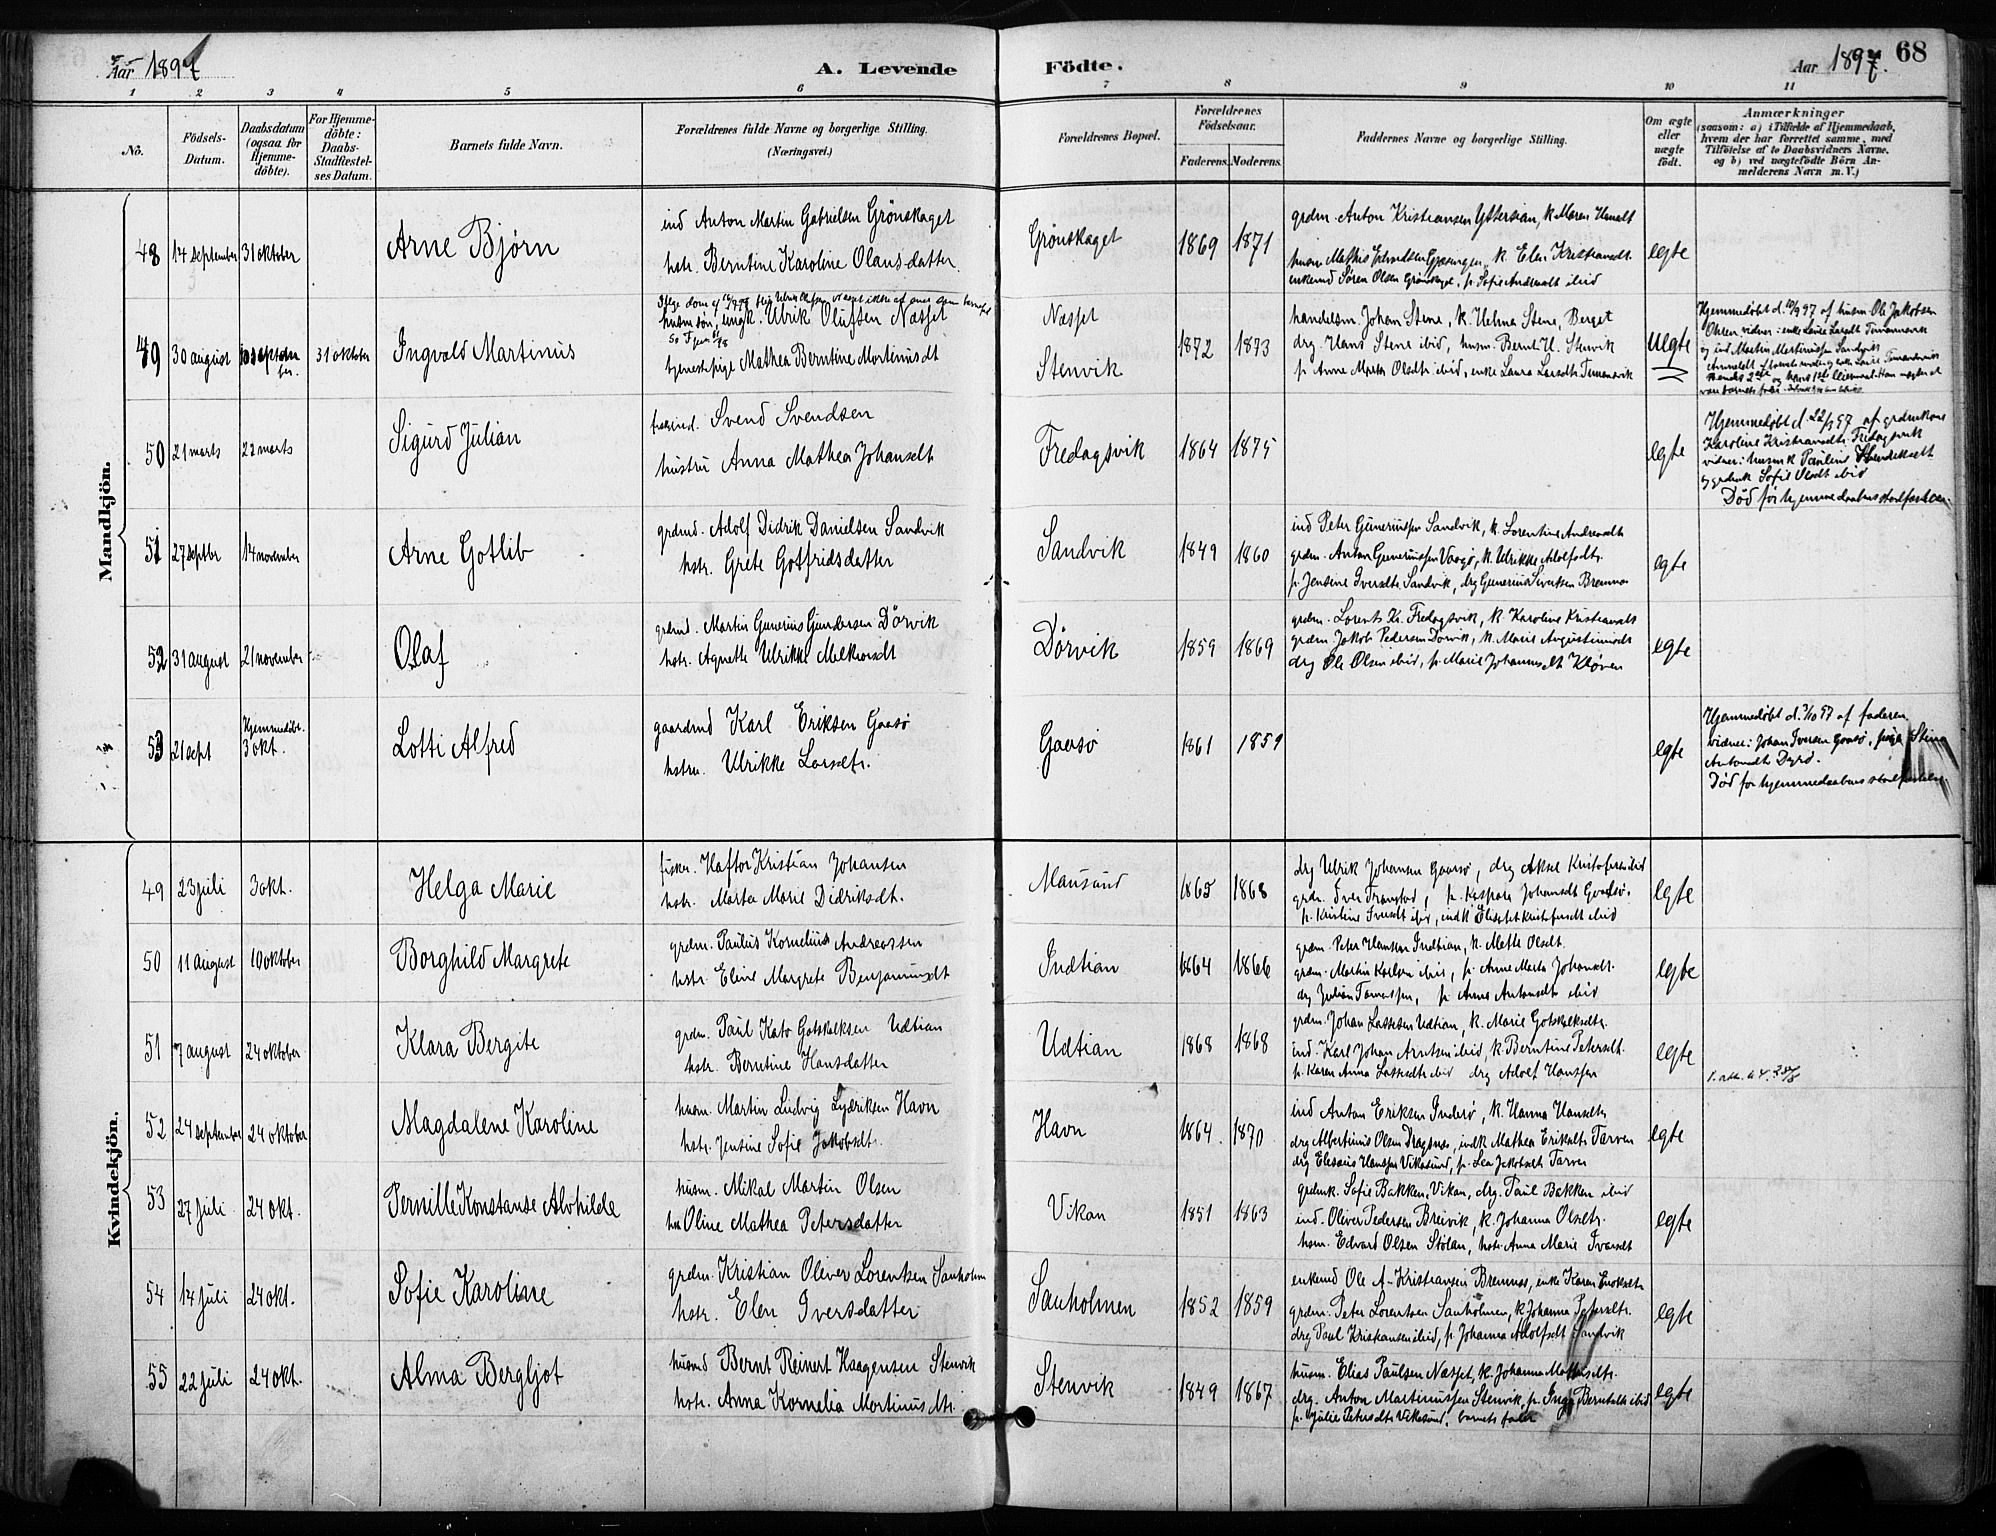 Aar 1897
A. Levende Födte.
Aar 1897.
68
1 2 3 4 5 6 7 8 9 10 11
No.
Födsels-Datum.
Daabsdatum (ogsaa for Hjemme-döbte).
For Hjemme-döbte: Daabs-Stadfæstel-ses Datum.
Barnets fulde Navn.
Forældrenes fulde Navne og borgerlige Stilling.
(Næringsvei.)
Forældrenes Bopæl.
Forældrenes Födselsaar.
Faderens. Moderens.
Faddernes Navne og borgerlige Stilling.
Om ægte eller uægte födt.
Anmærkninger
(saasom: a) i Tilfælde af Hjemmedaab, hvem der har forrettet samme, med Tilföielse af to Daabsvidners Navne, og b) ved uægtefödte Börn An-melderens Navn m. V.)
Mandkjön.
48 14 september 31 oktober Arne Bjørn
ind Anton Martin Gabrielsen Grönskaget
hstr. Berntine Karoline Olausdatter.
Grönskaget 1869 1871
grdm. Anton Kristiansen Yttersian, k. Maren
enkemd Sören Olsen Grönskaget, p. Sofie ibid
egte
49 30 august 31 oktober Ingvald Martinus
husm. sön, ungk. Ulrik Olufsen Næsset
tjenestepige Mathea Berntine Martinusdt
Næsset
Stenvik
1872 1873
handelsm. Johan Stene, k. Helma Stene, Berget
drg. Hans Stene ibid, husm. Bernt H. Stenvik
p. Anne Marta Olsdtr ibid, enke Laura Larsdtr
Uegte
Hjemmedøbt d. 10/9 97 af husm. Ole Jakobsen
50 21 marts 22 marts Sigurd Julian
Svend Svendsen
hustru Anna Mathea Johansdt.
Fredagsvik 1864 1875 egte
Hjemmedøbt d. 22/3 97 af grdmkone
Karoline Kristiansdtr. Fredagsvik
vidner: husmk Pauline
Sofie Olsdt ibid
Død før hjemmedaabens stadfæstelse.
51 27 septbr 14 november Arne Gotlib
grdmd. Adolf Didrik Danielsen Sandvik
hstr. Grete Gotfridsdatter
Sandvik 1849 1860
ind Peter Guneriussen Sandvik, k. Lorentine Andreasdt
grdm. Anton Guneriussen Vaagø, k. Ulrikke Adolfsdtr.
p. Jensine Iversdtr Sandvik, drg Gunerius Sivertsen Bremnes
egte
52 31 august 21 november Olaf
grdmd. Martin Gunerius Gundersen Dörvik
hstr. Agnette Ulrikke Melkiorsdt
Dörvik 1859 1869
grdm. Lorents Kr. Fredagsvik, k. Karoline Kristiansdt
grdm Jakob Pedersen Dörvik, k. Marie Augustinusdt
drg Ole Olsen ibid, p. Marie Johannesdt. Kløven
egte
53 21 sept Hjemmedøbt. 3 okt. Lotti Alfred
gaardmd Karl Eriksen Gaasø
hstru. Ulrikke Larsdtr.
Gaasø 1861 1859 egte
Hjemmedøbt d. 3/10 97 af faderen.
Vidner: Johan Iversen Gaasø, pige Stina
Antonsdt Dyrø.
Død før hjemmedaabens stadfæstelse.
Kvindekjön.
49 23 juli 3 okt. Helga Marie
fisker. Haftor Kristian Johansen
hstr. Marta Marie Didriksdt.
Mausund 1865 1868
drg Ulrik Johansen Gaasø, drg Aksel Kristofersen ibid
grdm. Iver, p. Kaspara Johansdt Gaasø.
p. Kristine Iversdt ibid, indk Elisabet Kristofersdt ibid
egte
50 11 august 10 oktober Borghild Margrete
grdm. Paulus Kornelius Andreassen
hstr. Eline Margrete Benjaminsdt
Indtian 1864 1866
grdm. Peter Hansen Indtian, k. Mette Olsdt.
grdm. Martin Karlsen ibid, p. Anne Marta Johansdt.
drg Julian, p. Anna Antonsdt ibid
egte
51 7 august 24 oktober Klara Bergite
grdm. Paul Kato Gotskalksen Udtian
hstr. Berntine Hansdatter
Udtian 1868 1868
grdm. Johan Lassesen Udtian, k. Marie Gotskalksdtr.
ind. Karl Johan Arntsen ibid, k. Berntine Petersdt.
p. Karen Anna Lassesdtr ibid drg Adolf Hanssen
egte
52 24 september 24 oktober Magdalene Karoline
husm. Martin Ludvig Lydriksen Havn
hstr. Jensine Sofie Jakobsdt.
Havn 1864. 1870
ind Anton Eriksen Inderö, k. Hanna Hansdtr
drg Albertinus Olsen Dragsnes, indk Mathea Eriksdtr Tarven
drg Eleseus Hanssen Viksund, p. Lea Jakobsdt Tarven
egte
53 27 juli 24 okt. Pernille Konstanse Alvhilde
husm. Mikal Martin Olsen
hu Oline Mathea Petersdatter
Vikan 1851 1863
grdmk. Sofie Bakken, Vikan, drg. Paul Bakken ibid
ind. Oliver Pedersen Breivik, k. Johanna Olsdtr.
husm. Edvard Olsen Stölan, hstr. Anna Marie Ivarsdt
egte
54 14 juli 24 okt. Sofie Karoline
grdm. Kristian Oliver Lorentsen Sauholm
hstr. Elen Iversdatter
Sauholmen 1852 1859
enkemd Ole A. Kristiansen Bremnes, enke Karen
grdm. Peter Lorentsen Sauholmen, k. Johanna Petersdtr.
drg Paul Kristiansen ibid, p. Johanna Adolfsdt Sandvik
egte
55 22 juli 24 okt. Alma Bergljot
husmd Bernt Reinert Haagensen Stenvik
hstr. Anna Kornelia Martinusdtr.
Stenvik 1849 1867
husm. Elias Paulsen Næsset, k. Johanna
drg. Anton Martinussen Stenvik, p. Inga Berntsdtr ibid
p. Julie Petersdtr Viksund, barnets fader
egte